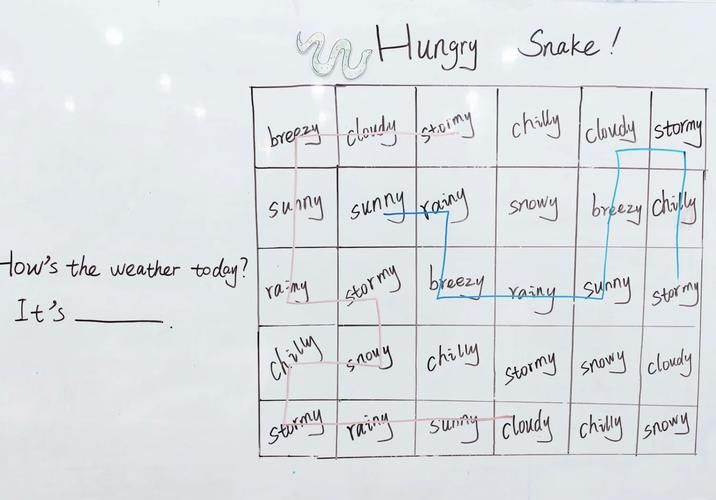 Hungry Snake!
breezy cloudy stormy chilly cloudy stormy
sunny sunny rainy snowy breezy chilly
rainy stormy breezy rainy sunny stormy
chilly snowy chilly stormy snowy cloudy
stormy rainy sunny cloudy chilly snowy
How's the weather today?
It's ______.